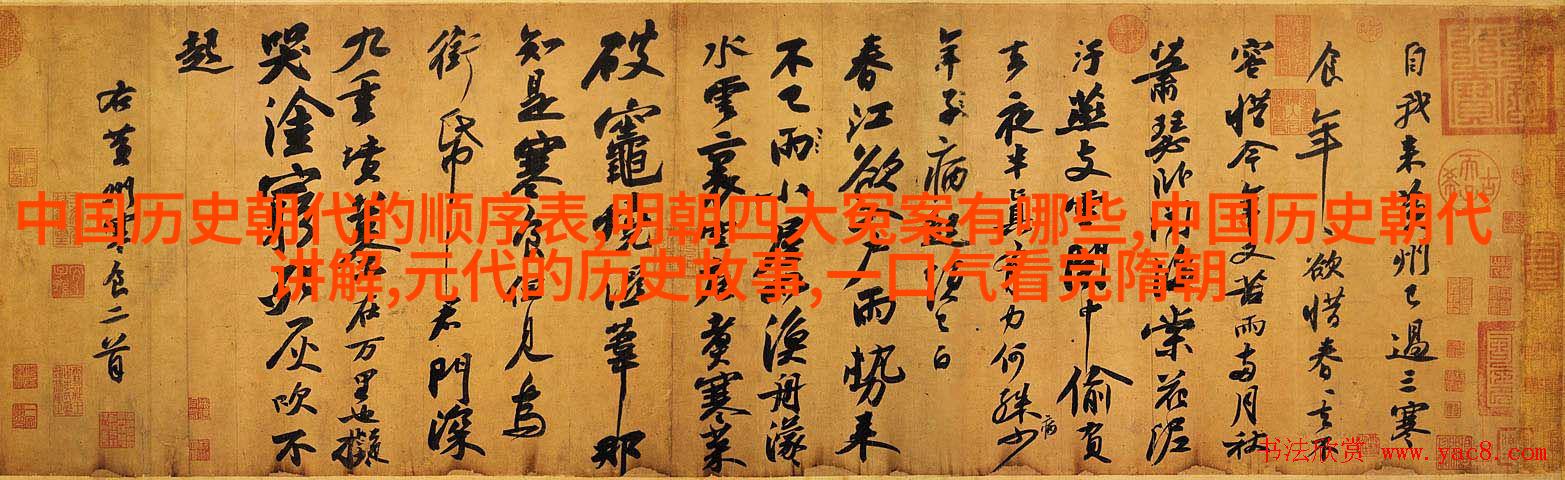 中国历史朝代的顺序表,明朝四大冤案有哪些,中国历史朝代
讲解,元代的历史故事,一口气看完隋朝
自我来黄州已過三寒
食年〻欲惜春〻去不
容惜今年又苦雨兩月秋
蕭瑟卧聞海棠花泥
汙燕支雪闇中偷負
去夜半真有力何殊少病
年子病起須已白
春江欲入户雨勢来
不已雨小屋如漁舟濛
水雲裏空庖煮寒菜
破竈燒濕葦那
知是寒食但見烏
銜帋君門深
九重墳墓在万里也擬
哭塗窮死灰吹不
起
右黄州寒食二首
书法欣赏 www.yac8.com